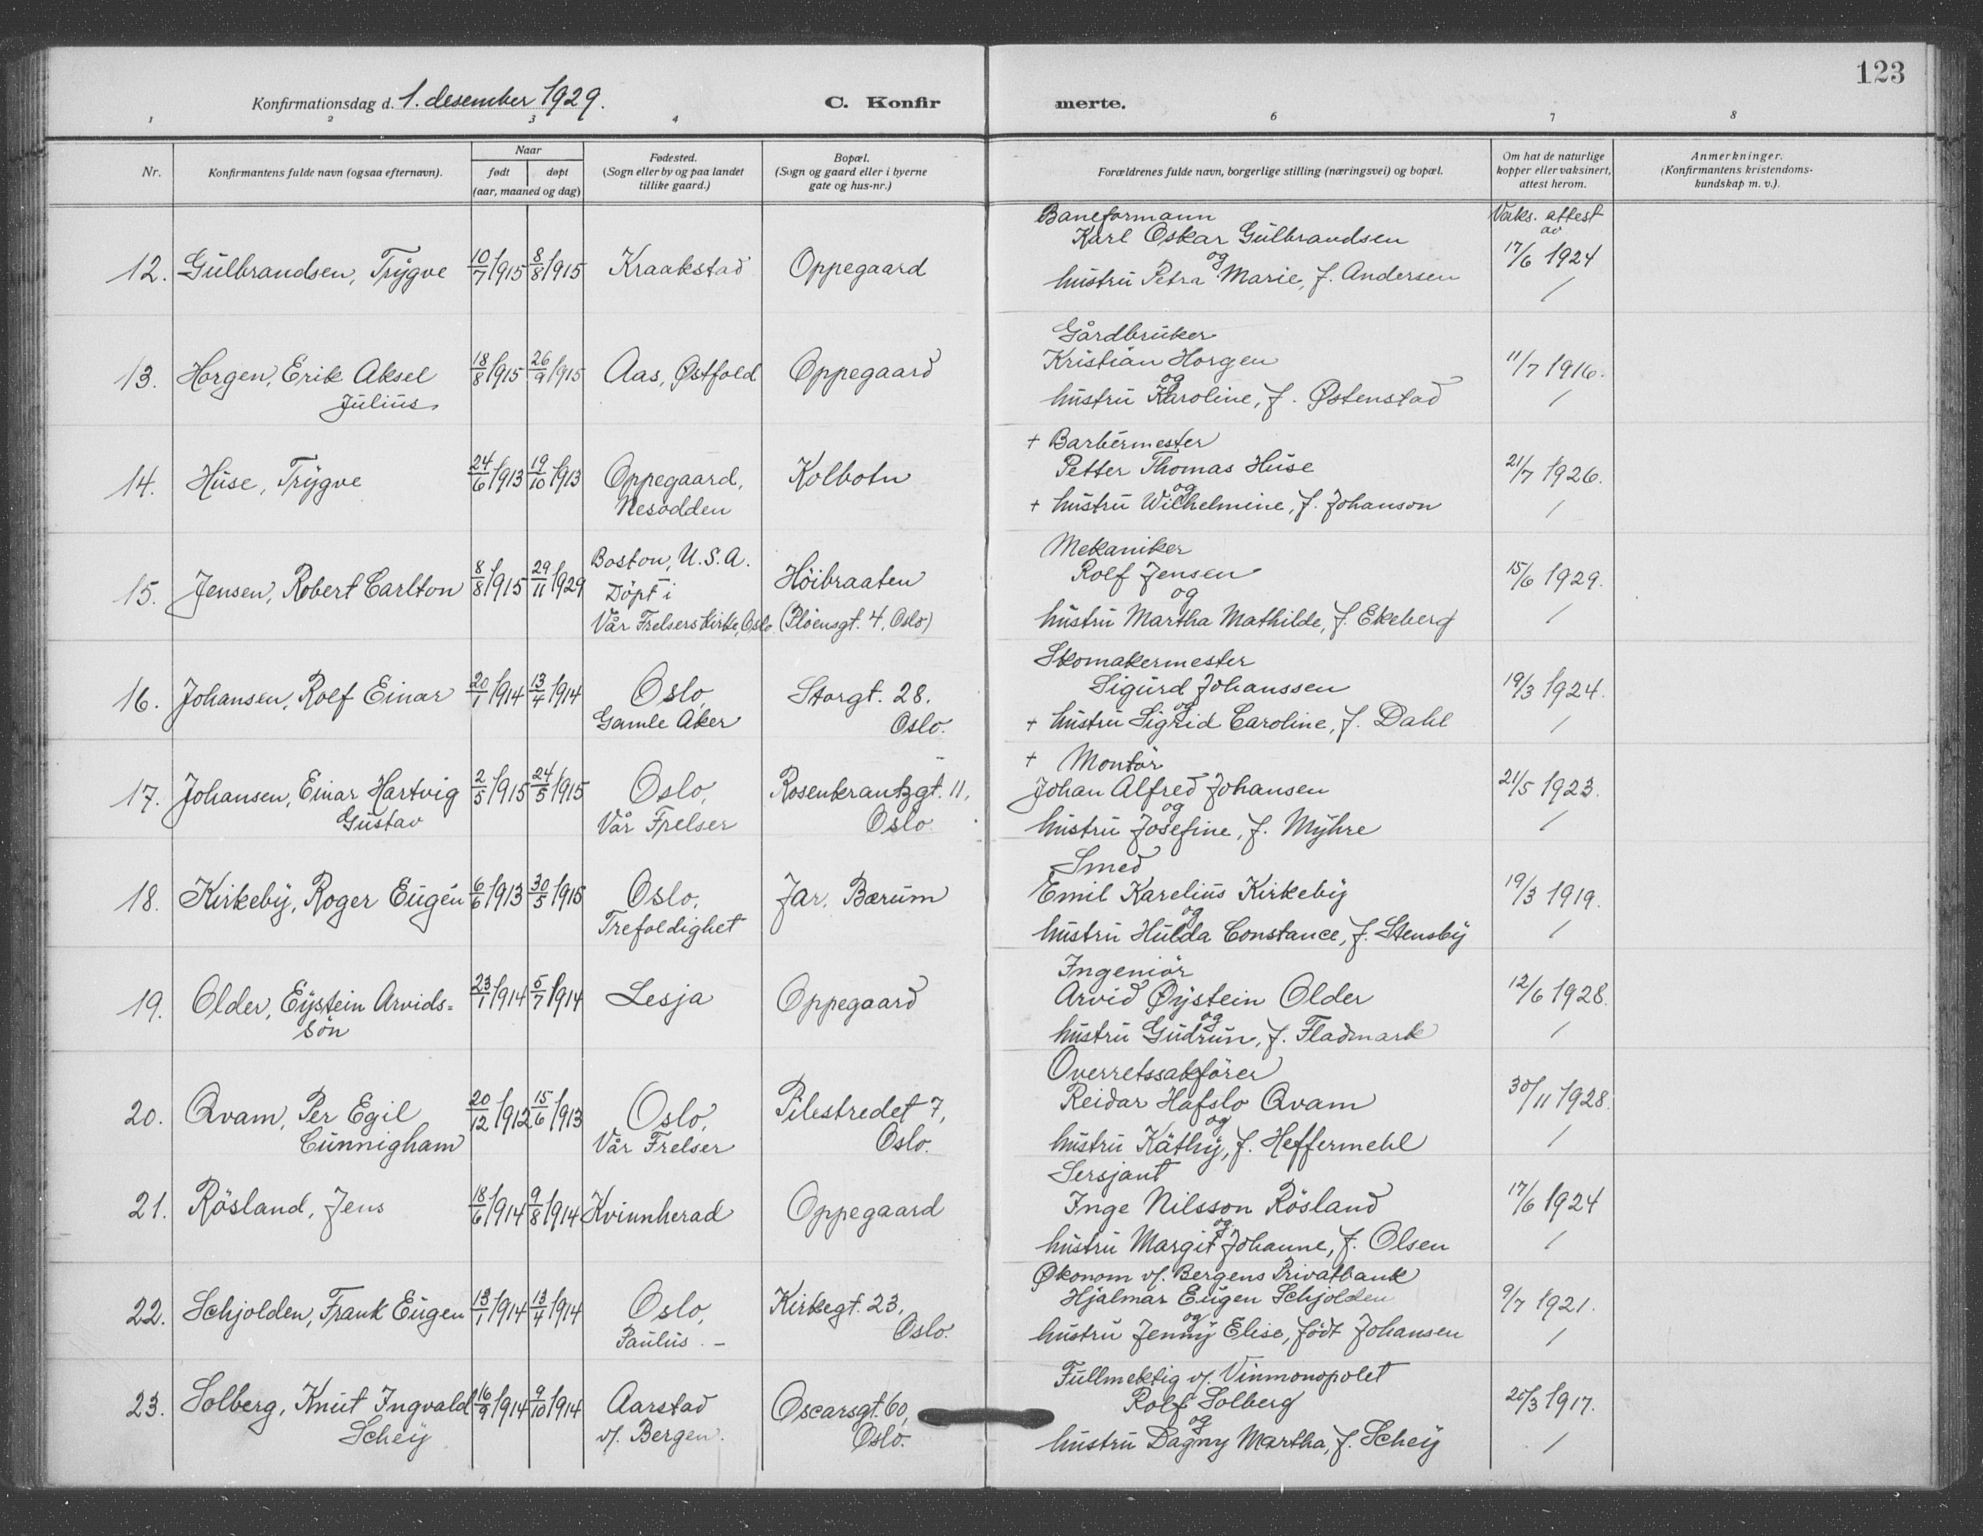 123
Konfirmationsdag d. 1. desember 1929. C. Konfir merte.
1 2 3 4 6 7 8
Nr. Konfirmantens fulde navn (ogsaa efternavn).
Naar
født døpt
(aar, maaned og dag)
Fødested.
(Sogn eller by og paa landet
tillike gaard.)
Bopæl.
(Sogn og gaard eller i byerne
gate og hus-nr.)
Forældrenes fulde navn, borgerlige stilling (næringsvei) og bopæl.
Om hat de naturlige
kopper eller vaksinert,
attest herom.
Anmerkninger.
(Konfirmantens kristendoms-
kundskap m. v.).
Baneformann Vaks. attest
Karl Oskar Gulbrandsen av
12. Gulbrandsen, Trygve 10/7 1915 8/8 1915 Kraakstad Oppegaard og 17/6 1924
hustru Petra Marie, f. Andersen /
Gårdbruker
Kristian Horgen
13. Horgen, Erik Aksel 18/8 1915 26/9 1915 Aas, Østfold Oppegaard og 11/7 1916.
Julius hustru Karoline, f. Østenstad /
+ Barbermester
Petter Thomas Huse
14. Huse, Trygve 24/6 1913 19/10 1913 Oppegaard, Kolbotn og 21/7 1926.
Nesodden + hustru Wilhelmine, f. Johanson /
Boston, U.S.A. Mekaniker
15. Jensen, Robert Carlton 8/8 1915 29/11 1929 Döpt i Höibraaten Rolf Jensen 15/6 1929.
og
Vår Frelsers kirke, Oslo (Plöensgt. 4, Oslo) hustru Martha Mathilde, f. Ekeberg /
Skomakermester
16. Johansen, Rolf Einar 20/1 1914 13/4 1914 Oslo, Storgt. 28. Sigurd Johanssen 19/3 1924.
og
Gamle Aker Oslo. + hustru Sigrid Caroline, f. Dahl /
+ Montör
17. Johansen, Einar Hartvig 2/5 1915 24/5 1915 Oslo, Rosenkrantzgt. 11, Johan Alfred Johansen 21/5 1923.
og
Gustav Vår Frelser Oslo hustru Josefine, f. Myhre /
Smed
18. Kirkeby, Roger Eugén 6/6 1913 30/5 1915 Oslo, Jar, Bærum Emil Karelius Kirkeby 19/3 1919.
og
Trefoldighet hustru Hulda Constance, f. Stensby /
Ingeniör
19. Older, Eystein Arvids= 23/1 1914 5/7 1914 Lesja Oppegaard Arvid Øystein Older 12/6 1928.
og
sön hustru Gudrun, f. Fladmark /
Overretssakförer
20. Qvam, Per Egil 20/12 1912 15/6 1913 Oslo, Pilestredet 7, Reidar Hafslo Qvam 30/11 1928.
og
Cunnigham Vår Frelser Oslo. hustru Käthy, f. Heffermehl /
Sersjant
21. Rösland, Jens 18/6 1914 9/8 1914 Kvinnherad Oppegaard Inge Nilsson Rösland 17/6 1924
og
hustru Margit Johanne, f. Olsen /
Økonom v/. Bergens Privatbank
22. Schjolden, Frank Eugen 13/1 1914 13/4 1914 Oslo, Kirkegt. 23, Hjalmar Eugen Schjolden 9/7 1921.
og
Paulus. – Oslo. hustru Jenny Elise, født Johansen /
Fullmektig v/. Vinmonopolet
23. Solberg, Knut Ingvald 16/9 1914 9/10 1914 Aarstad Oscarsgt. 60, Rolf Solberg 20/3 1917.
og
Schey v/. Bergen. Oslo. hustru Dagny Martha, f. Schey /